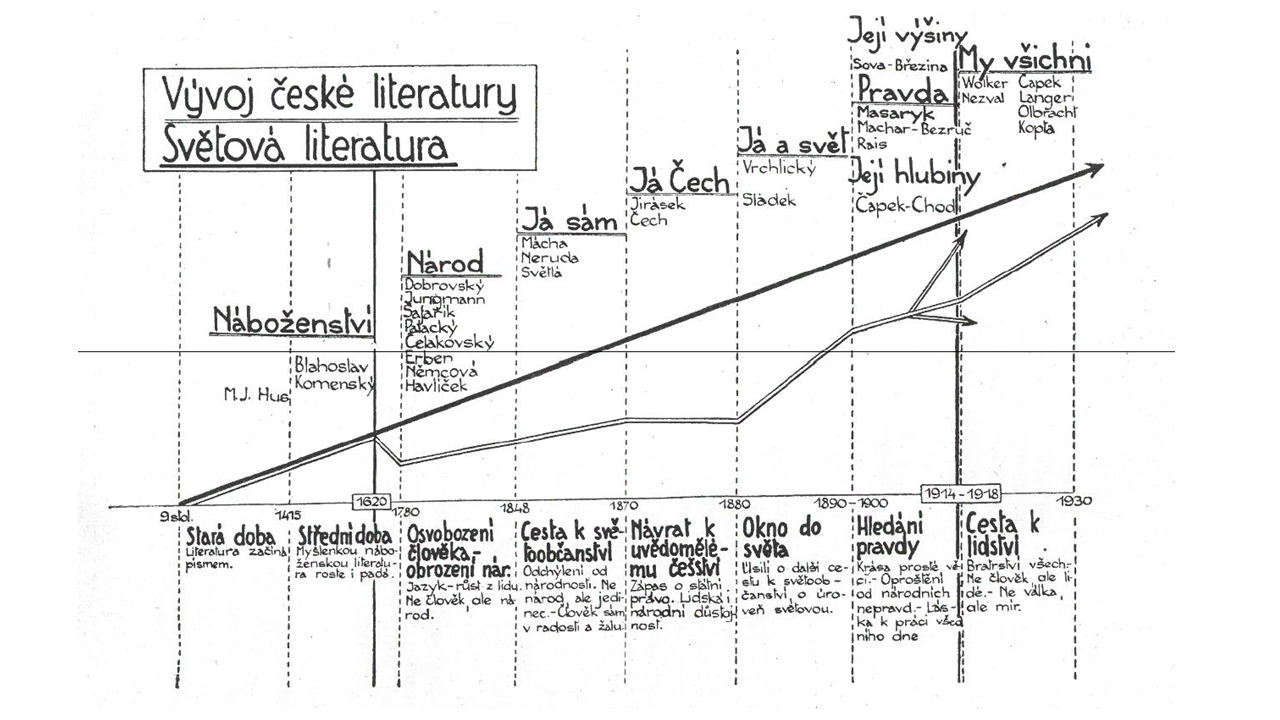 Vývoj české literatury
Světová literatura
Náboženství
M.J. Hus
Blahoslav
Komenský
Národ
Dobrovský
Jungmann
Šafařík
Palacký
Čelakovský
Erben
Němcová
Havlíček
Já sám
Mácha
Neruda
Světlá
Já Čech
Jirásek
Čech
Já a svět
Vrchlický
Sládek
Její výšiny
Sova-Březina
Pravda
Masaryk
Machar-Bezruč
Rais
Její hlubiny
Čapek-Chod
My všichni
Wolker Čapek
Nezval Langer
Olbracht
Kopta
9 stol.
1415
1620
1780
1848
1870
1880
1890-1900
1914-1918
1930
Stará doba
Literatura začíná
písmem.
Střední doba
Myšlenkou nábo-
ženskou literatu-
ra roste i padá.
Osvobození
člověka,-
obrození nár.
Jazyk-růst z lidu.
Ne člověk, ale ná-
rod.
Cesta k svě-
toobčanství
Odchýlení od
národnosti. Ne
národ, ale jedi-
nec.-Člověk sám
v radosti a žalu.
Návrat k
uvědomělé-
mu češství
Zápas o státní
právo. Lidská i
národní důstoj-
nost.
Okno do
světa
Úsilí o další ce-
stu k světoob-
čanství, o úro-
veň světovou.
Hledání
pravdy
Krása prosté vě-
ci.- Oproštění
od národních
nepravd.- Lás-
ka k práci všed
ního dne
Cesta k
lidství
Bratrství všech.-
Ne člověk, ale li-
dé.- Ne válka,
ale mír.